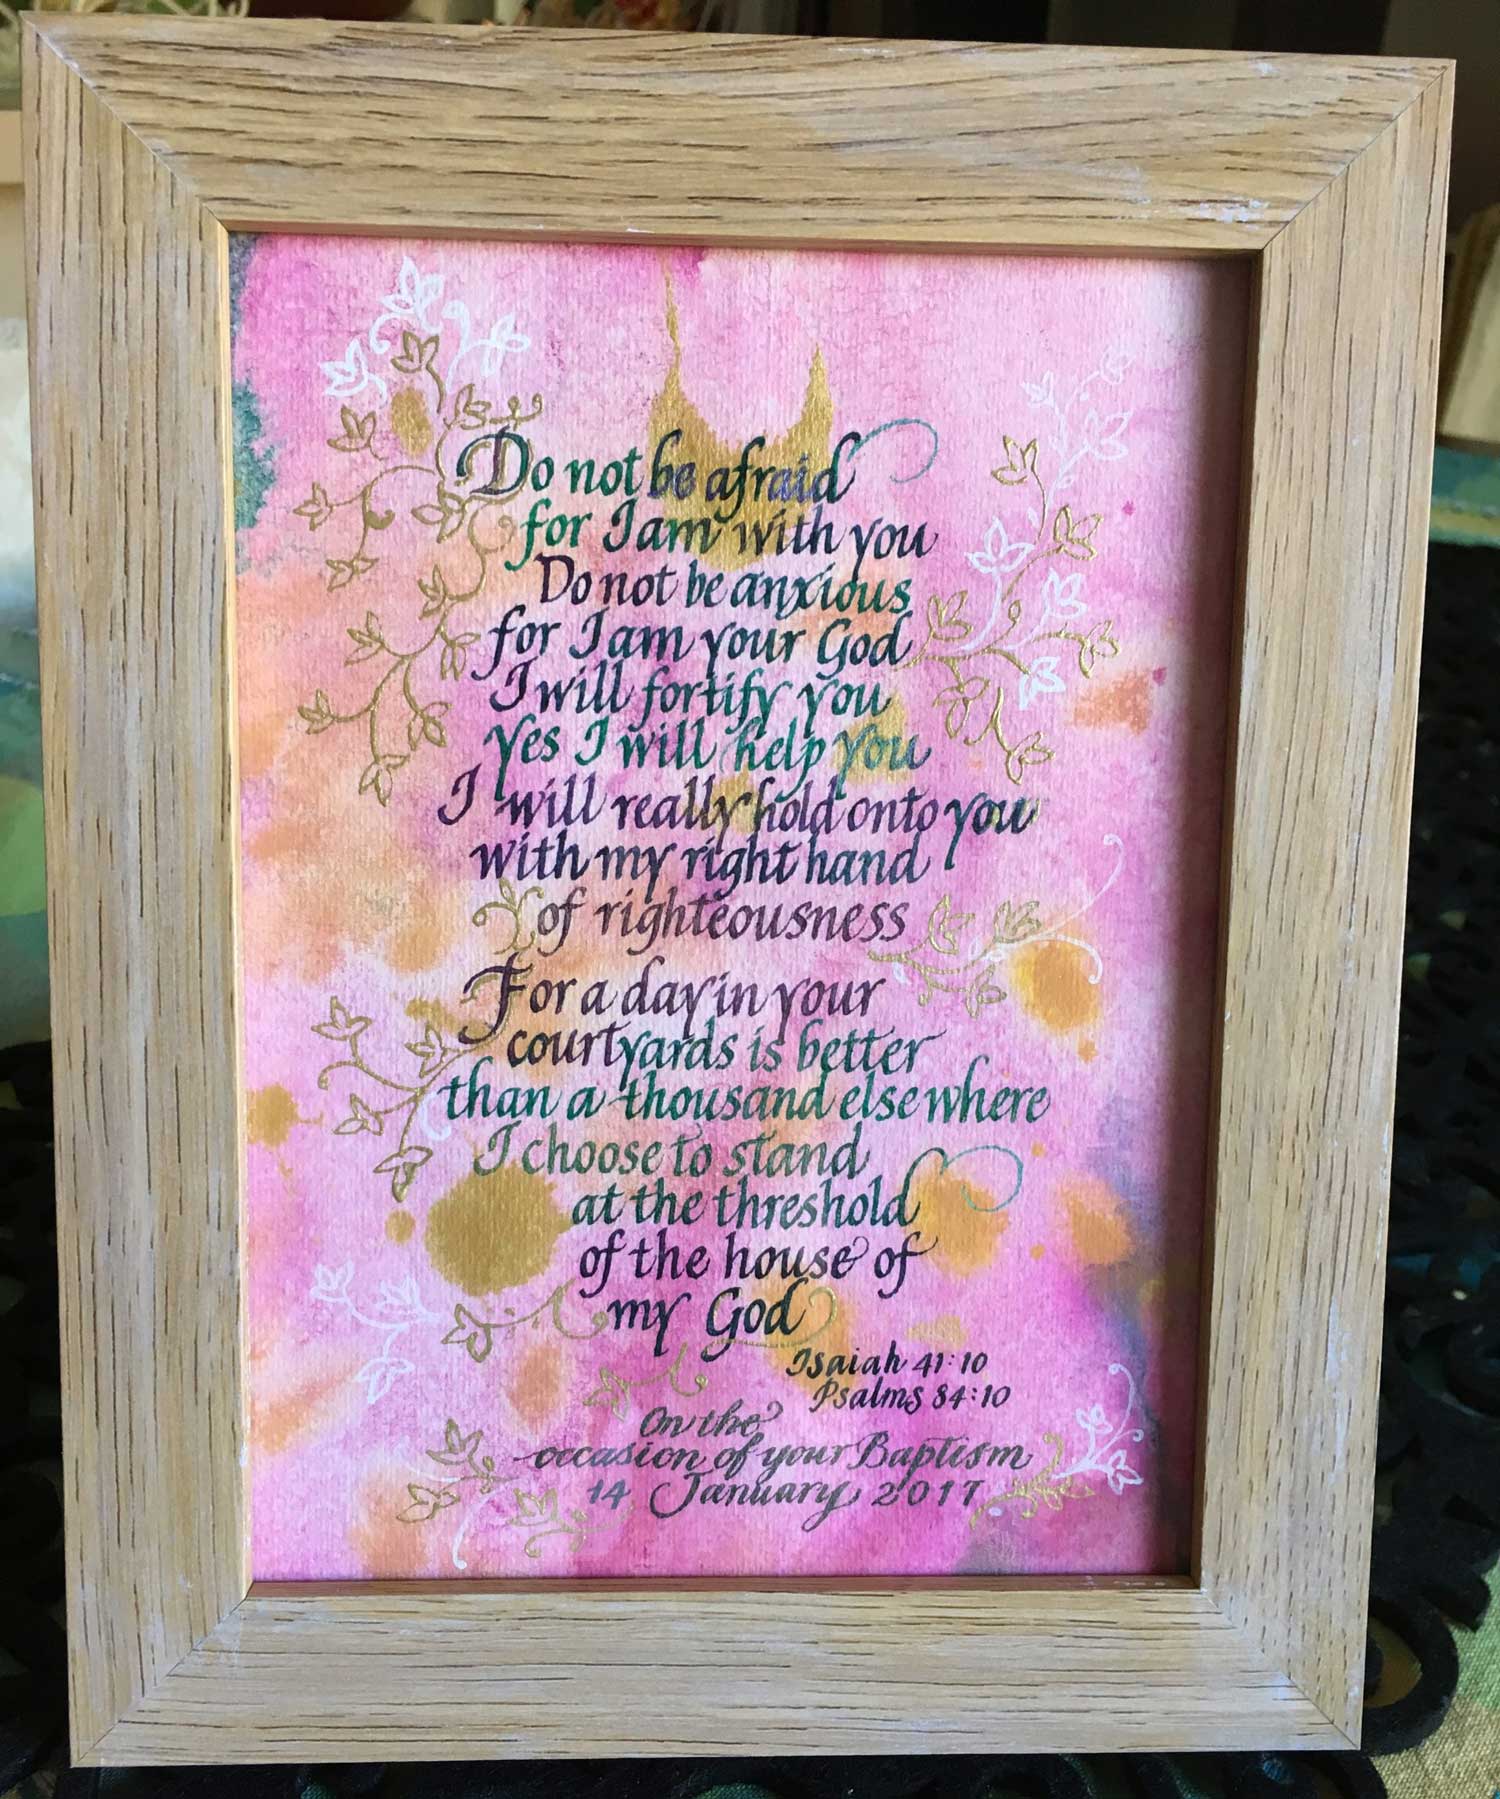 Do not be afraid
for I am with you
Do not be anxious
for I am your God
I will fortify you
yes I will help you
I will really hold onto you
with my right hand
of righteousness
For a day in your
courtyards is better
than a thousand elsewhere
I choose to stand
at the threshold
of the house of
my God
Isaiah 41:10
Psalms 84:10
On the
occasion of your Baptism
14 January 2017